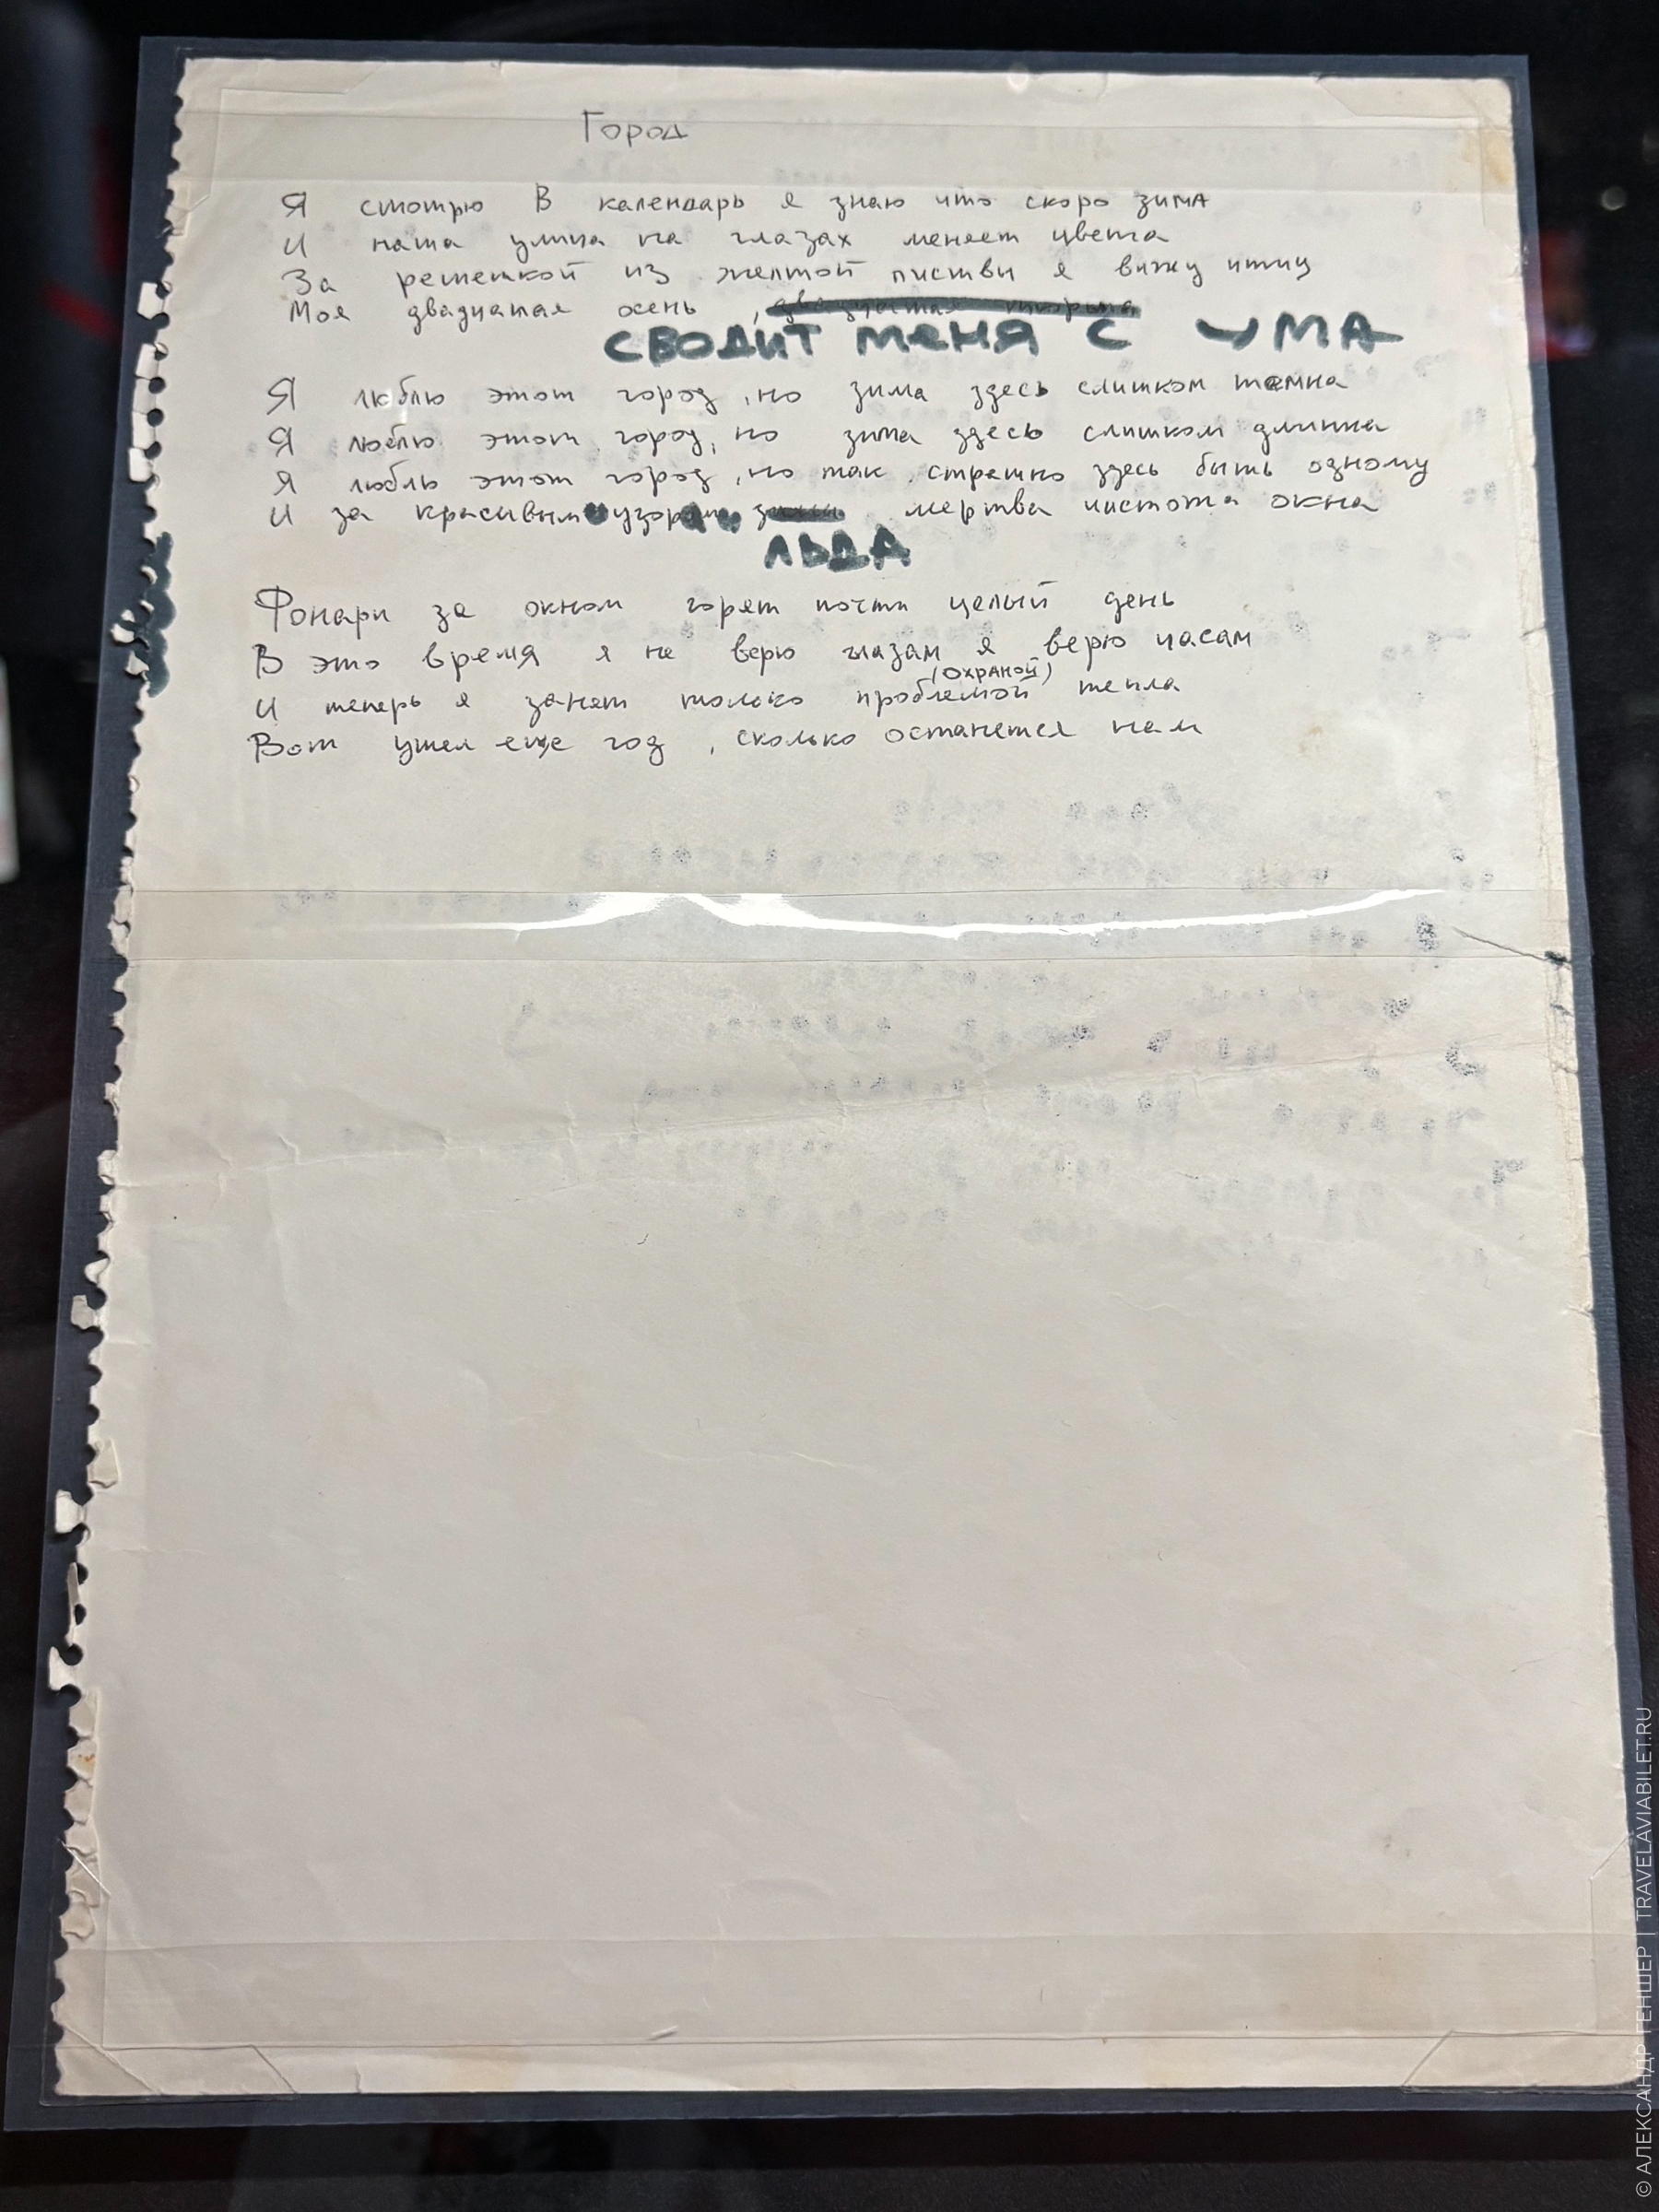 Город
Я смотрю в календарь я знаю что скоро зима
И наша улица на глазах меняет цвета
За решеткой из желтой листвы я вижу птиц
Моя двадцатая осень , двадцатая вторая
СВОДИТ МЕНЯ С УМА
Я люблю этот город, но зима здесь слишком темна
Я люблю этот город, но зима здесь слишком длинна
Я люблю этот город, но так страшно здесь быть одному
И за красивым узором мертва чистота окна
ЛЬДА
Фонари за окном горят почти целый день
В это время я не верю глазам я верю часам
(ОХРАНОЙ)
И теперь я занят только проблемой тепла
Вот ушел еще год , сколько останется нам
© АЛЕКСАНДР ГЕНШЕР | TRAVELAVIABILET.RU